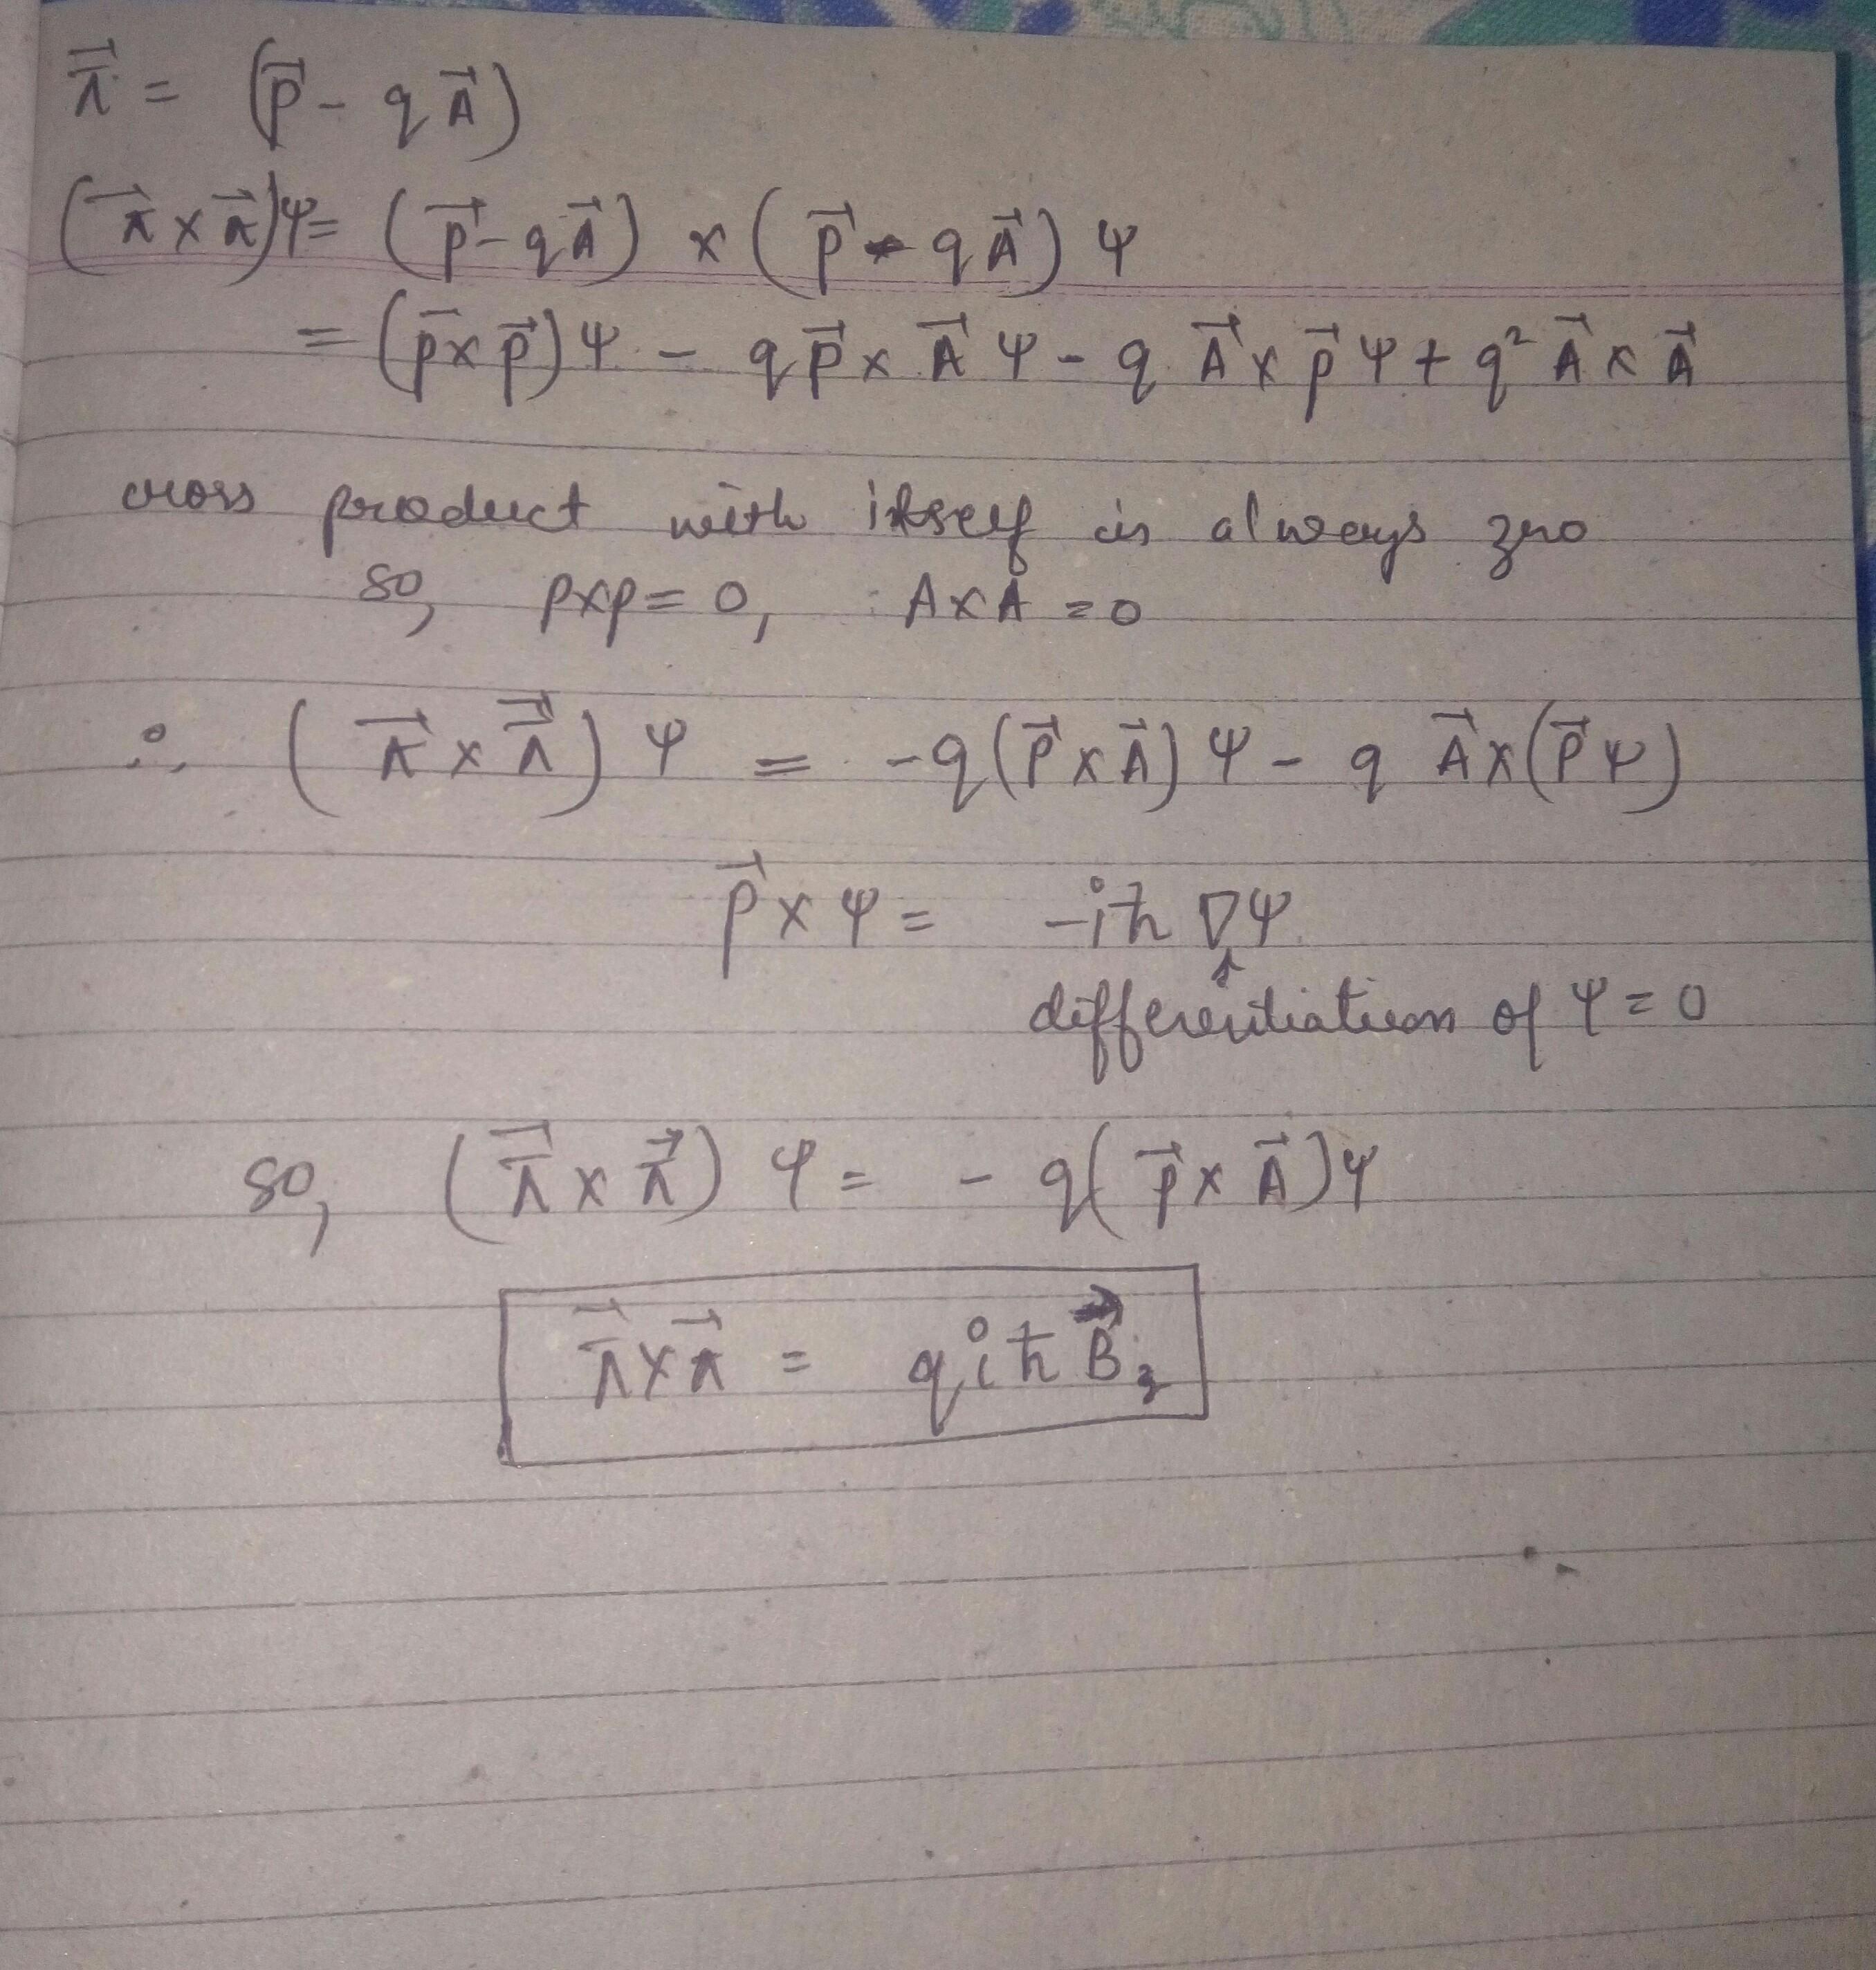 π⃗ = (p⃗ - qA⃗)
(π⃗ × π⃗)ψ = (p⃗ - qA⃗) × (p⃗ - qA⃗) ψ
= (p⃗×p⃗)ψ - qp⃗ × A⃗ ψ - q A⃗ × p⃗ ψ + q² A⃗ × A⃗
cross product with itself is always zero
so, p×p = 0, A×A = 0
∴ (π⃗ × π⃗) ψ = -q(p⃗×A⃗)ψ - q A⃗×(p⃗ψ)
p⃗×ψ = -iℏ ∇ψ
↑
differentiation of ψ = 0
so, (π⃗ × π⃗) ψ = - q(p⃗ × A⃗)ψ
π⃗×π⃗ = qiℏ B⃗z